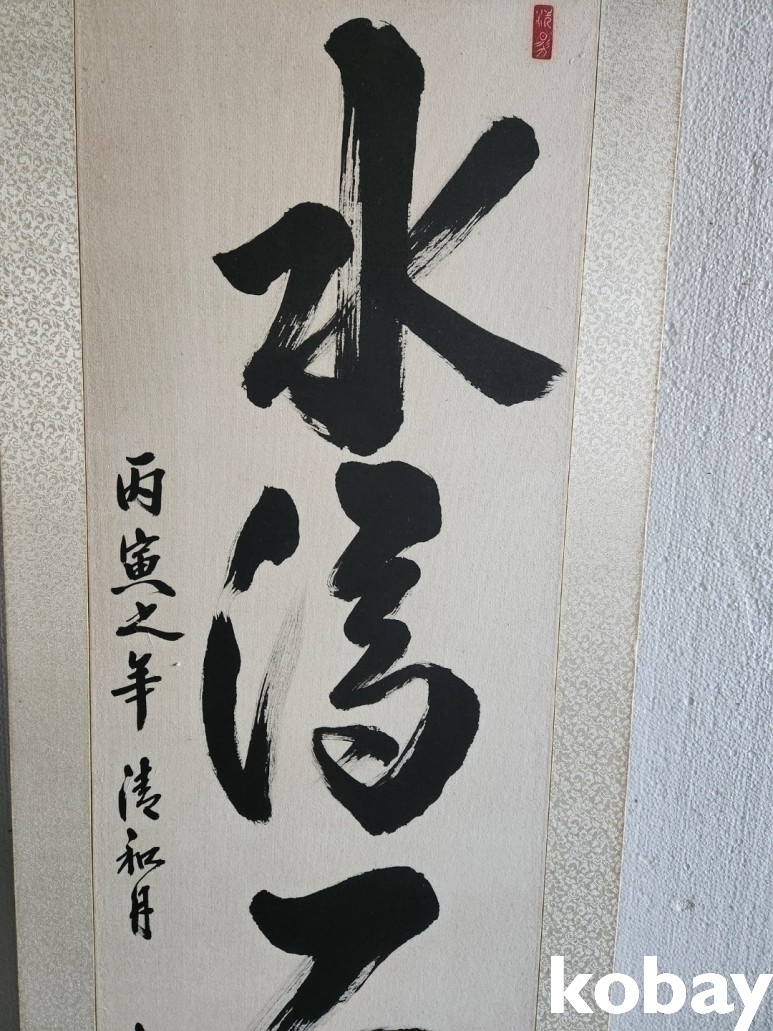 水滴石
丙寅之年 清和月
kobay